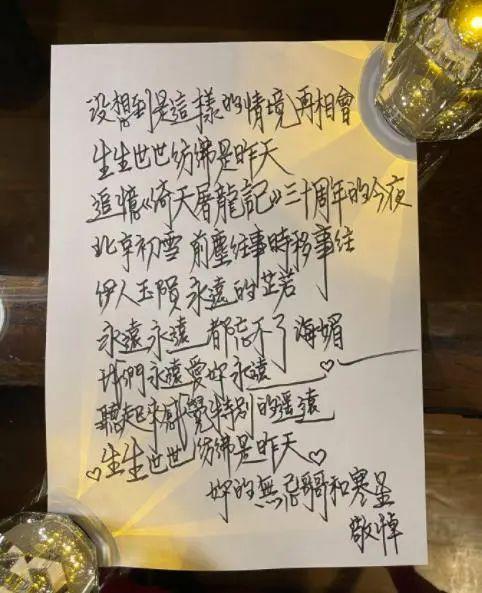 没想到是這樣的情境再相會
生生世世紡彿是昨天
追憶《倚天屠龍記》三十周年的今夜
北京初雪 前塵往事時移事往
伊人玉隕 永遠的芷若
永遠永遠 都忘不了海媚
我們永遠愛妳永遠
聽起來感覺特別的遥遠
♡生生世世 紡彿是昨天♡
妳的無忌哥哥和寒星
敬悼